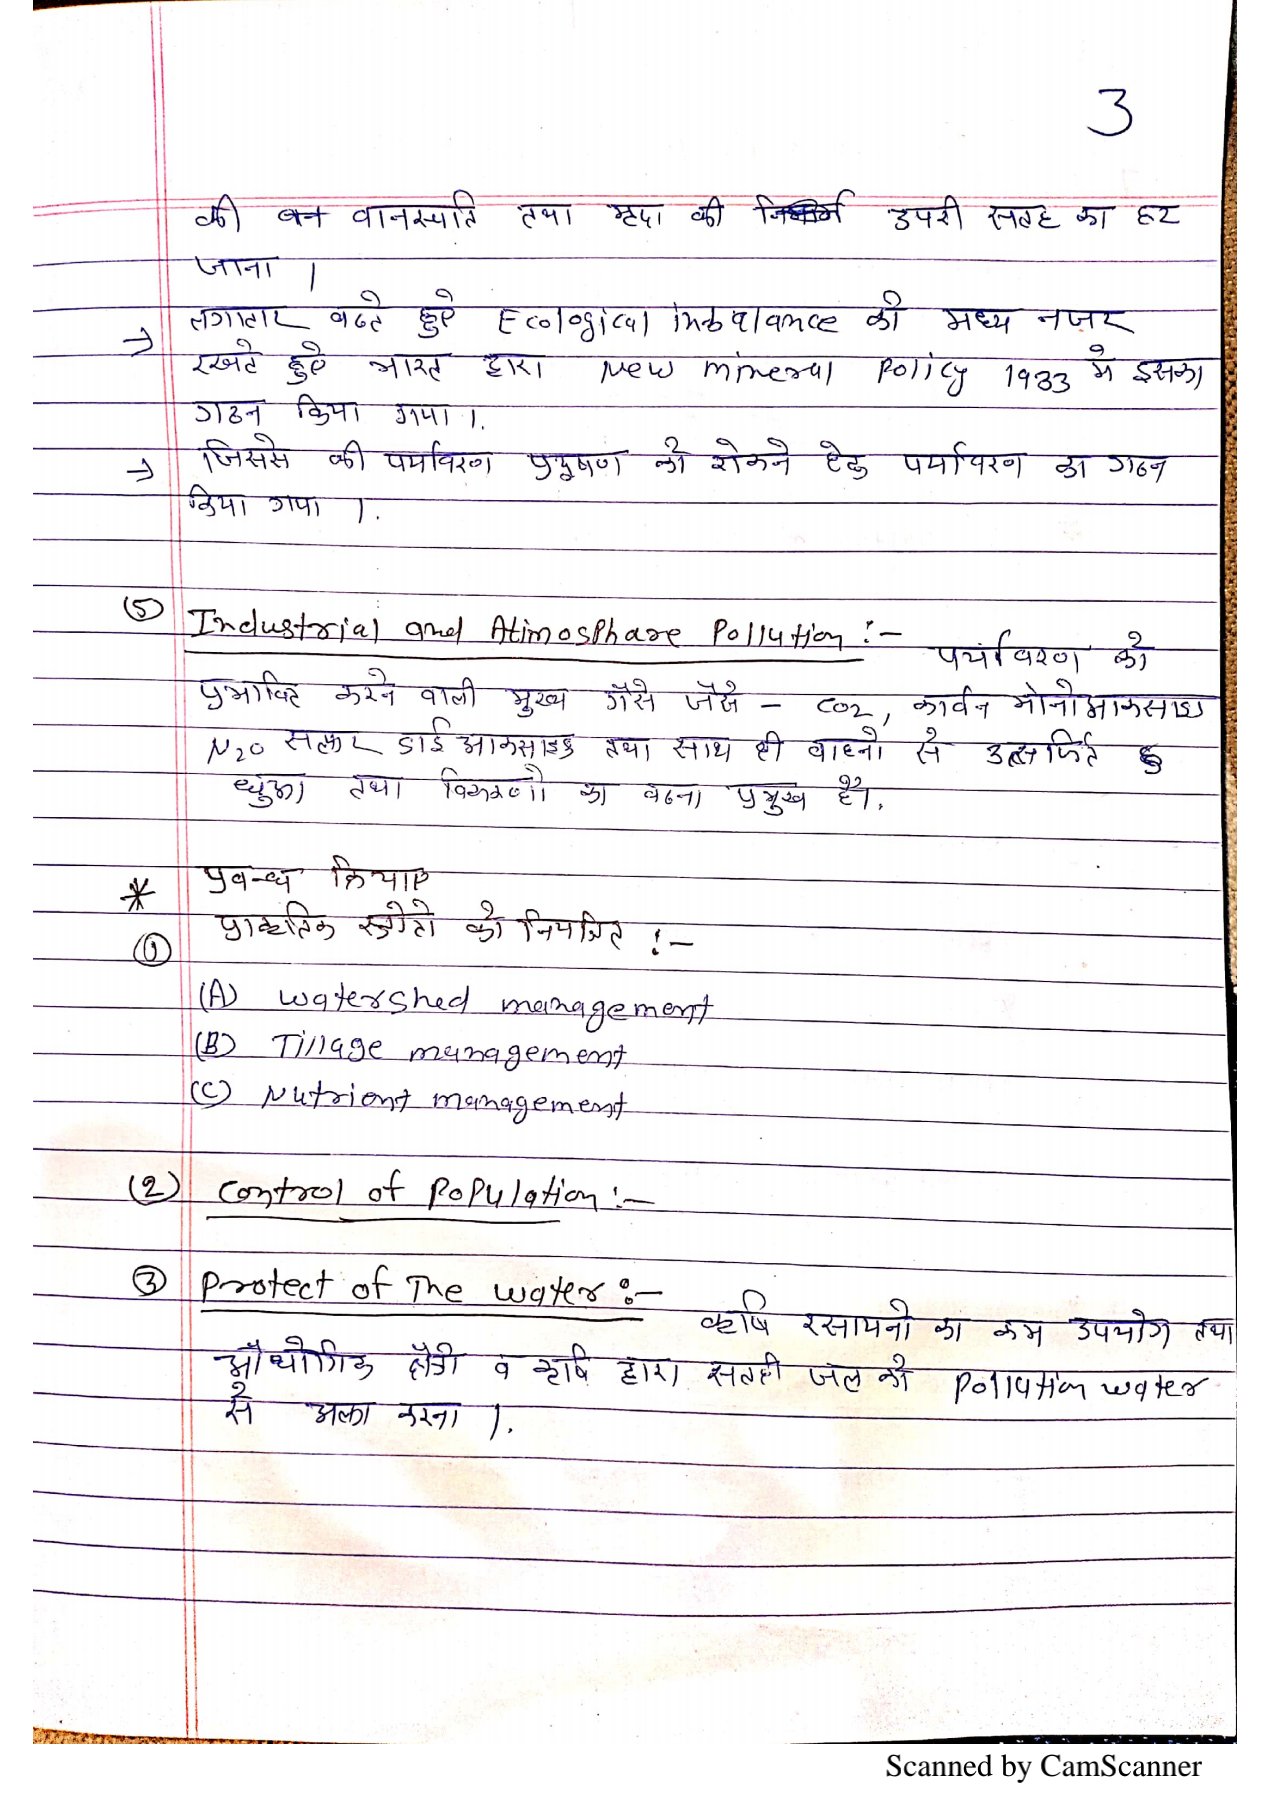 3
की वन वानस्पति तथा मृदा की उपरी सतह का हट
जाना |
→ लगातार बढते हुऐ Ecological imbalance को मध्य नजर
रखते हुऐ भारत द्वारा New mineral policy 1933 मे इसका
गठन किया गया |.
→ जिससे की पर्यावरण प्रदूषण को रोकने हेतु पर्यावरण का गठन
किया गया |.
(5) Industrial and Atimosphare Pollution :- पर्यावरण को
प्रभावित करने वाली मुख्य गैसे जैसे - CO2, कार्वन मोनोआकसाइड
N2O सल्फर डाई आकसाइड तथा साथ ही वाहनो से उत्सर्फित
धुआ तथा विकिरणो का बढना प्रमुख है।.
* प्रवन्ध क्रियाए
(1) प्राकृतिक स्त्रोतो को नियत्रित :-
(A) watershed management
(B) Tillage management
(C) Nutrient management
(2) Control of Population :-
(3) Protect of The water :- कृषि रसायनो का कम उपयोग तथा
औधोगिक क्षैत्रो व कृषि द्वारा सतही जल को Pollution water
से अलग करना |.
Scanned by CamScanner